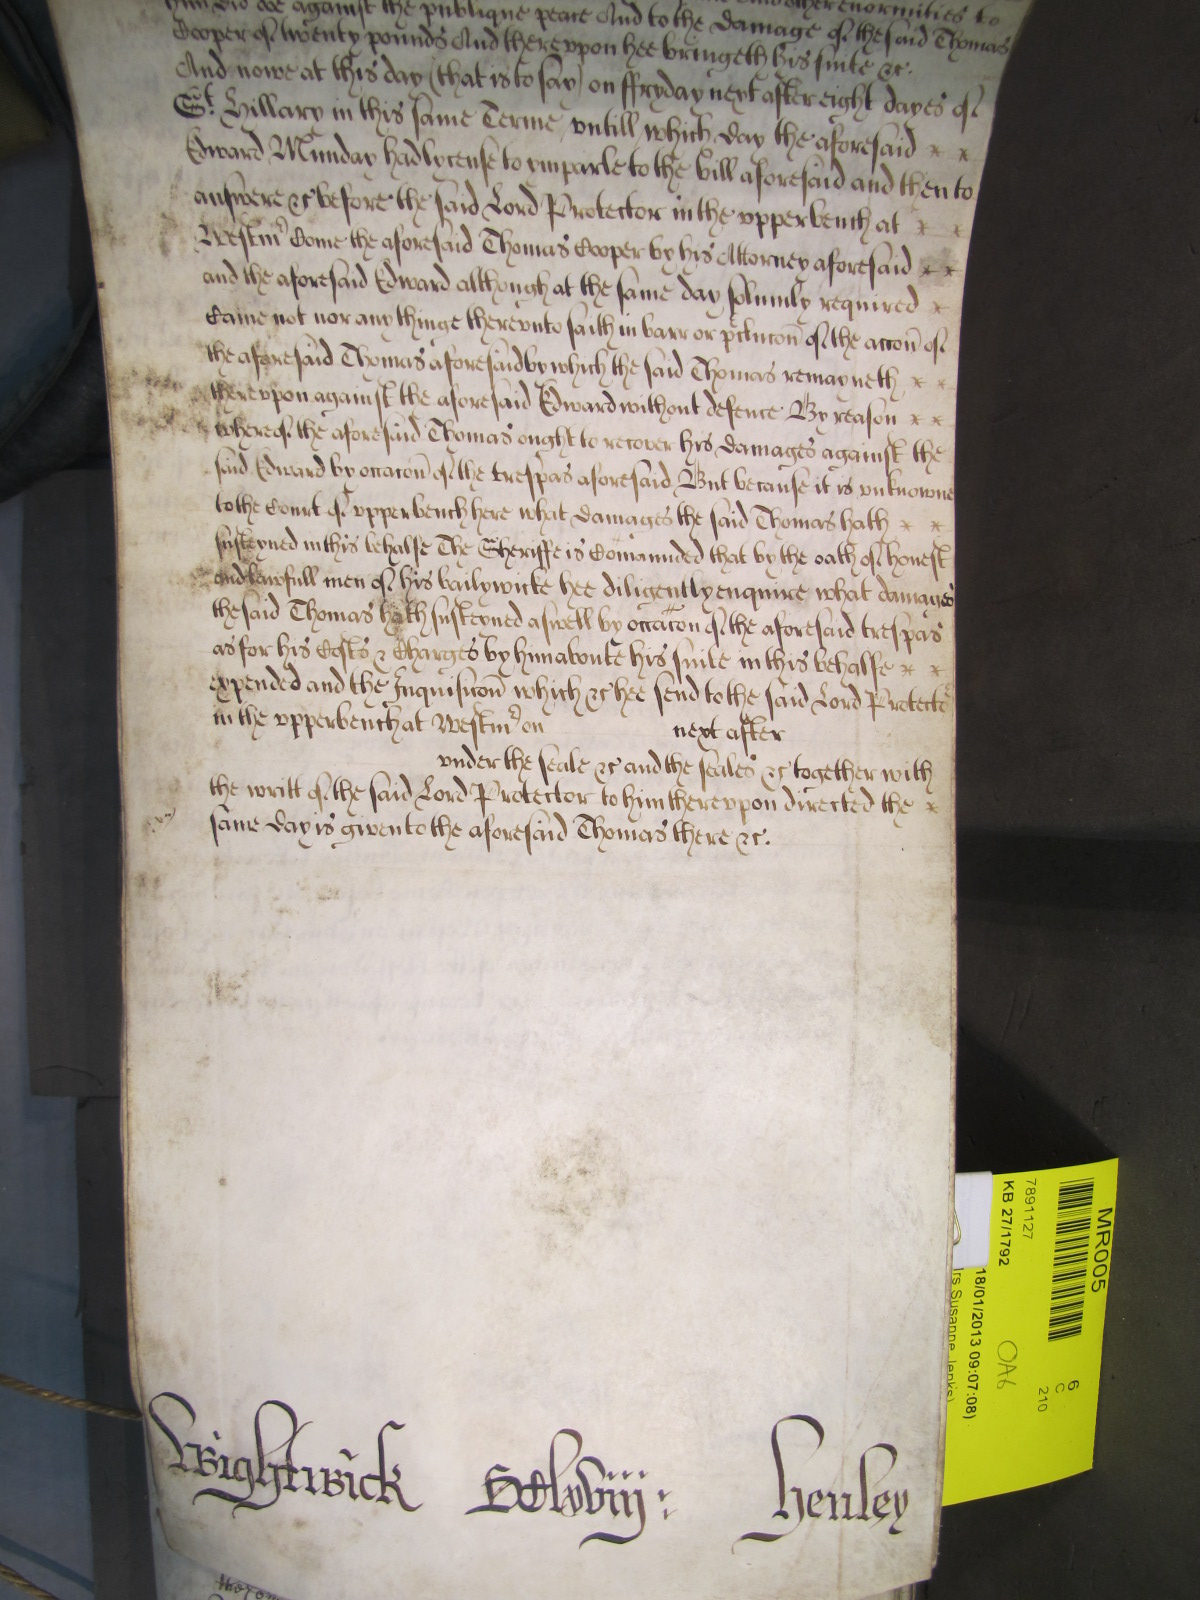 enormities to
him did &c against the publique peace And to the damage of the said Thomas
Cooper of twenty pounds And thereupon hee bringeth his suite &c.
And nowe at this day (that is to say) on ffryday next after eight dayes of
St. Hillary in this same Terme untill which day the aforesaid
Edward Munday had lycense to imparle to the bill aforesaid and then to
answere &c before the said Lord Protector in the upper bench at
Westmr Come the aforesaid Thomas Cooper by his Attorney aforesaid
and the aforesaid Edward although at the same day solemly required
Came not nor any thinge thereunto saith in barr or preclucon of the accon of
the aforesaid Thomas aforesaid by which the said Thomas remayneth
thereupon against the aforesaid Edward without defence By reason
whereof the aforesaid Thomas ought to recover his damages against the
said Edward by occacon of the trespas aforesaid But because it is unknowne
to the Court of upper bench here what damages the said Thomas hath
susteyned in this behalfe The Sheriffe is Comanded that by the oath of honest
and lawfull men of his bailywicke hee diligently enquire what damages
the said Thomas hath susteyned aswell by occacon of the aforesaid trespas
as for his Costs & Charges by him aboute his suite in this behalfe
expended and the Inquisicon which &c hee send to the said Lord Protector
in the upper bench at Westmr on next after
under the seale &c and the seales &c together with
the writt of the said Lord Protector to him thereupon directed the
same day is given to the aforesaid Thomas there &c.
Wightwick
henley
MR005
7891127
KB 27/1792
18/01/2013 09:07:08)
Susanne Jenks)
OA6
6
C
210